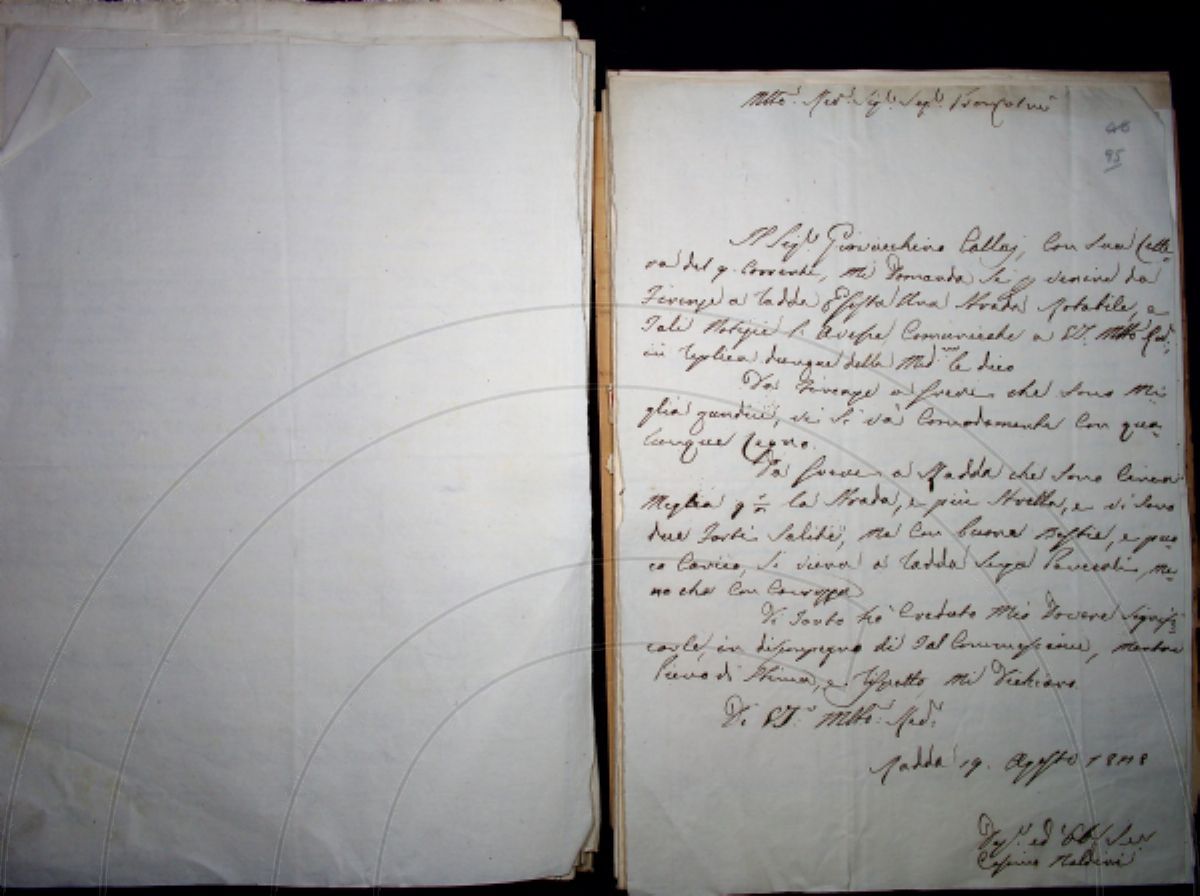 Mtto. Rev. Sigr. Sigr.
48
95
Il Sigr. Giovacchino Callaj, Con Sua Lette-
ra del 9. Corrente, mi Domanda Se p venire da
Firenze a Radda Esista Una Strada Rotabile, e
Tali Notizie l'avesse Comunicate a V.S. Mtto. Rev.
in Replica dunque della Medma. le dico
Da Firenze a Greve che Sono Mi-
glia quindici, vi Si và Comodamente Con qua-
lunque Legno.
Da Greve a Radda che Sono Circa
Miglia la Strada, e più Stretta, e vi Sono
due Forti Salite, ma Con buone Bestie, e po-
co Carico, Si viene a Radda Senza Pericoli, me-
no che Con Carrozza
Di Tanto hò Creduto Mio Dovere Signifi-
carle, in disimpegno di Tal Commissione, mentre
Pieno di Stima, e Rispetto Mi Dichiaro
Di V.S. Mtto. Rev.
Radda 19. Agosto 1818
Devmo. ed Obb. Ser.
Maldini